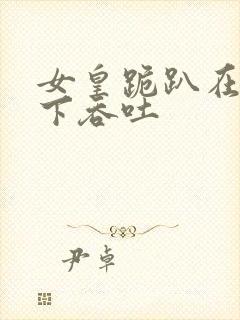 女皇跪趴在
下吞吐
尹卓